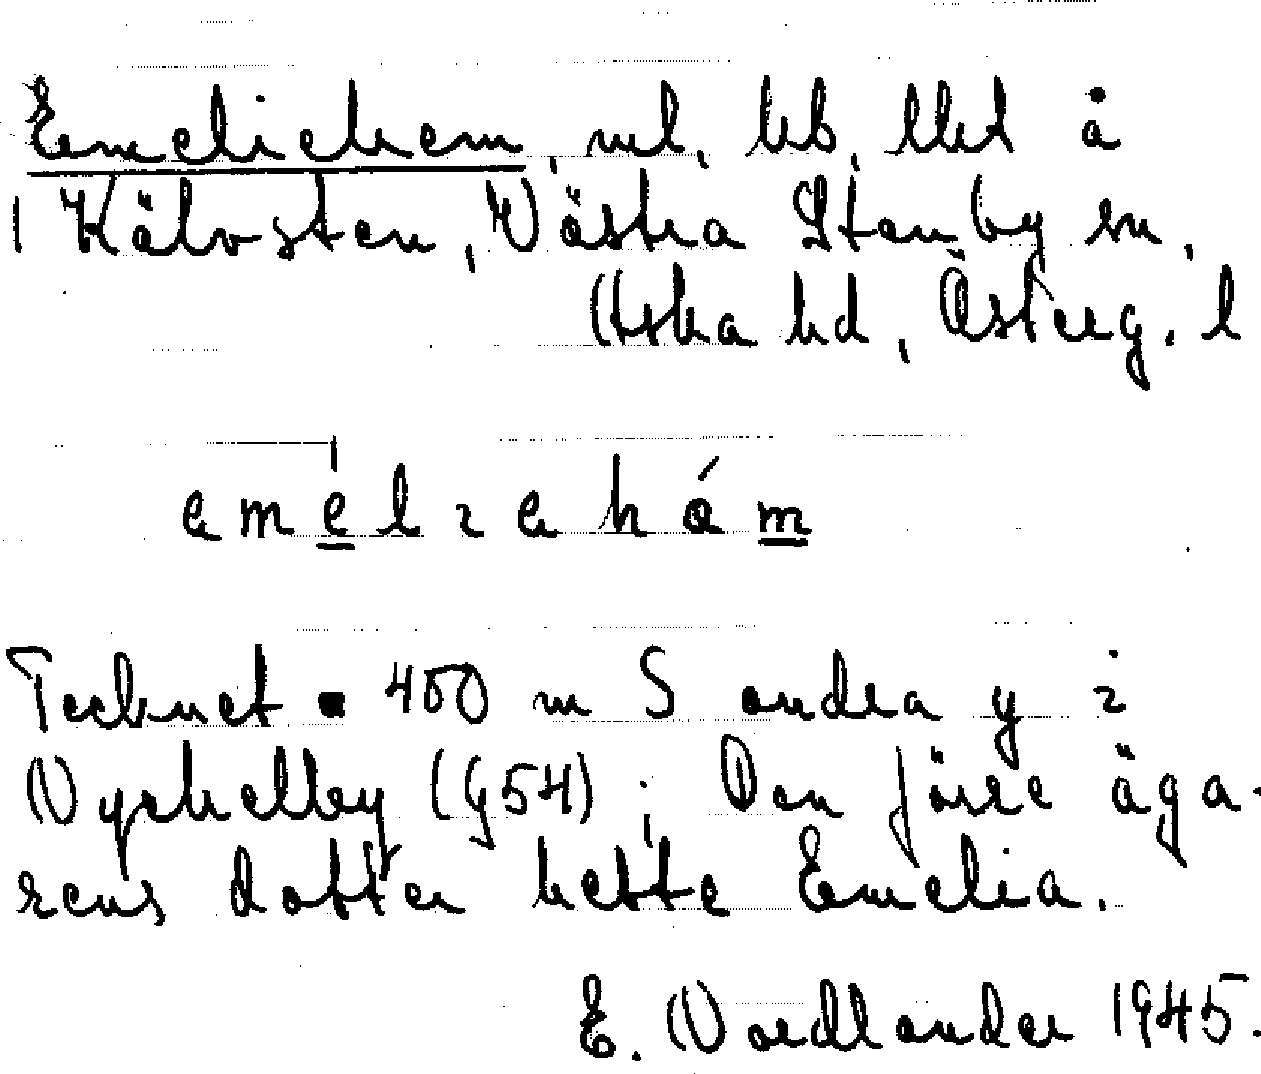 Emeliehem, nl, hb, lht å
1 Kälvsten, Västra Stenby sn,
Aska hd, Österg. l
emelıehém
Tecknet ▪ 400 m S andra y i
Nyckelby (954); Den förre äga-
rens dotter hette Emelia.
E. Nordlander 1945.